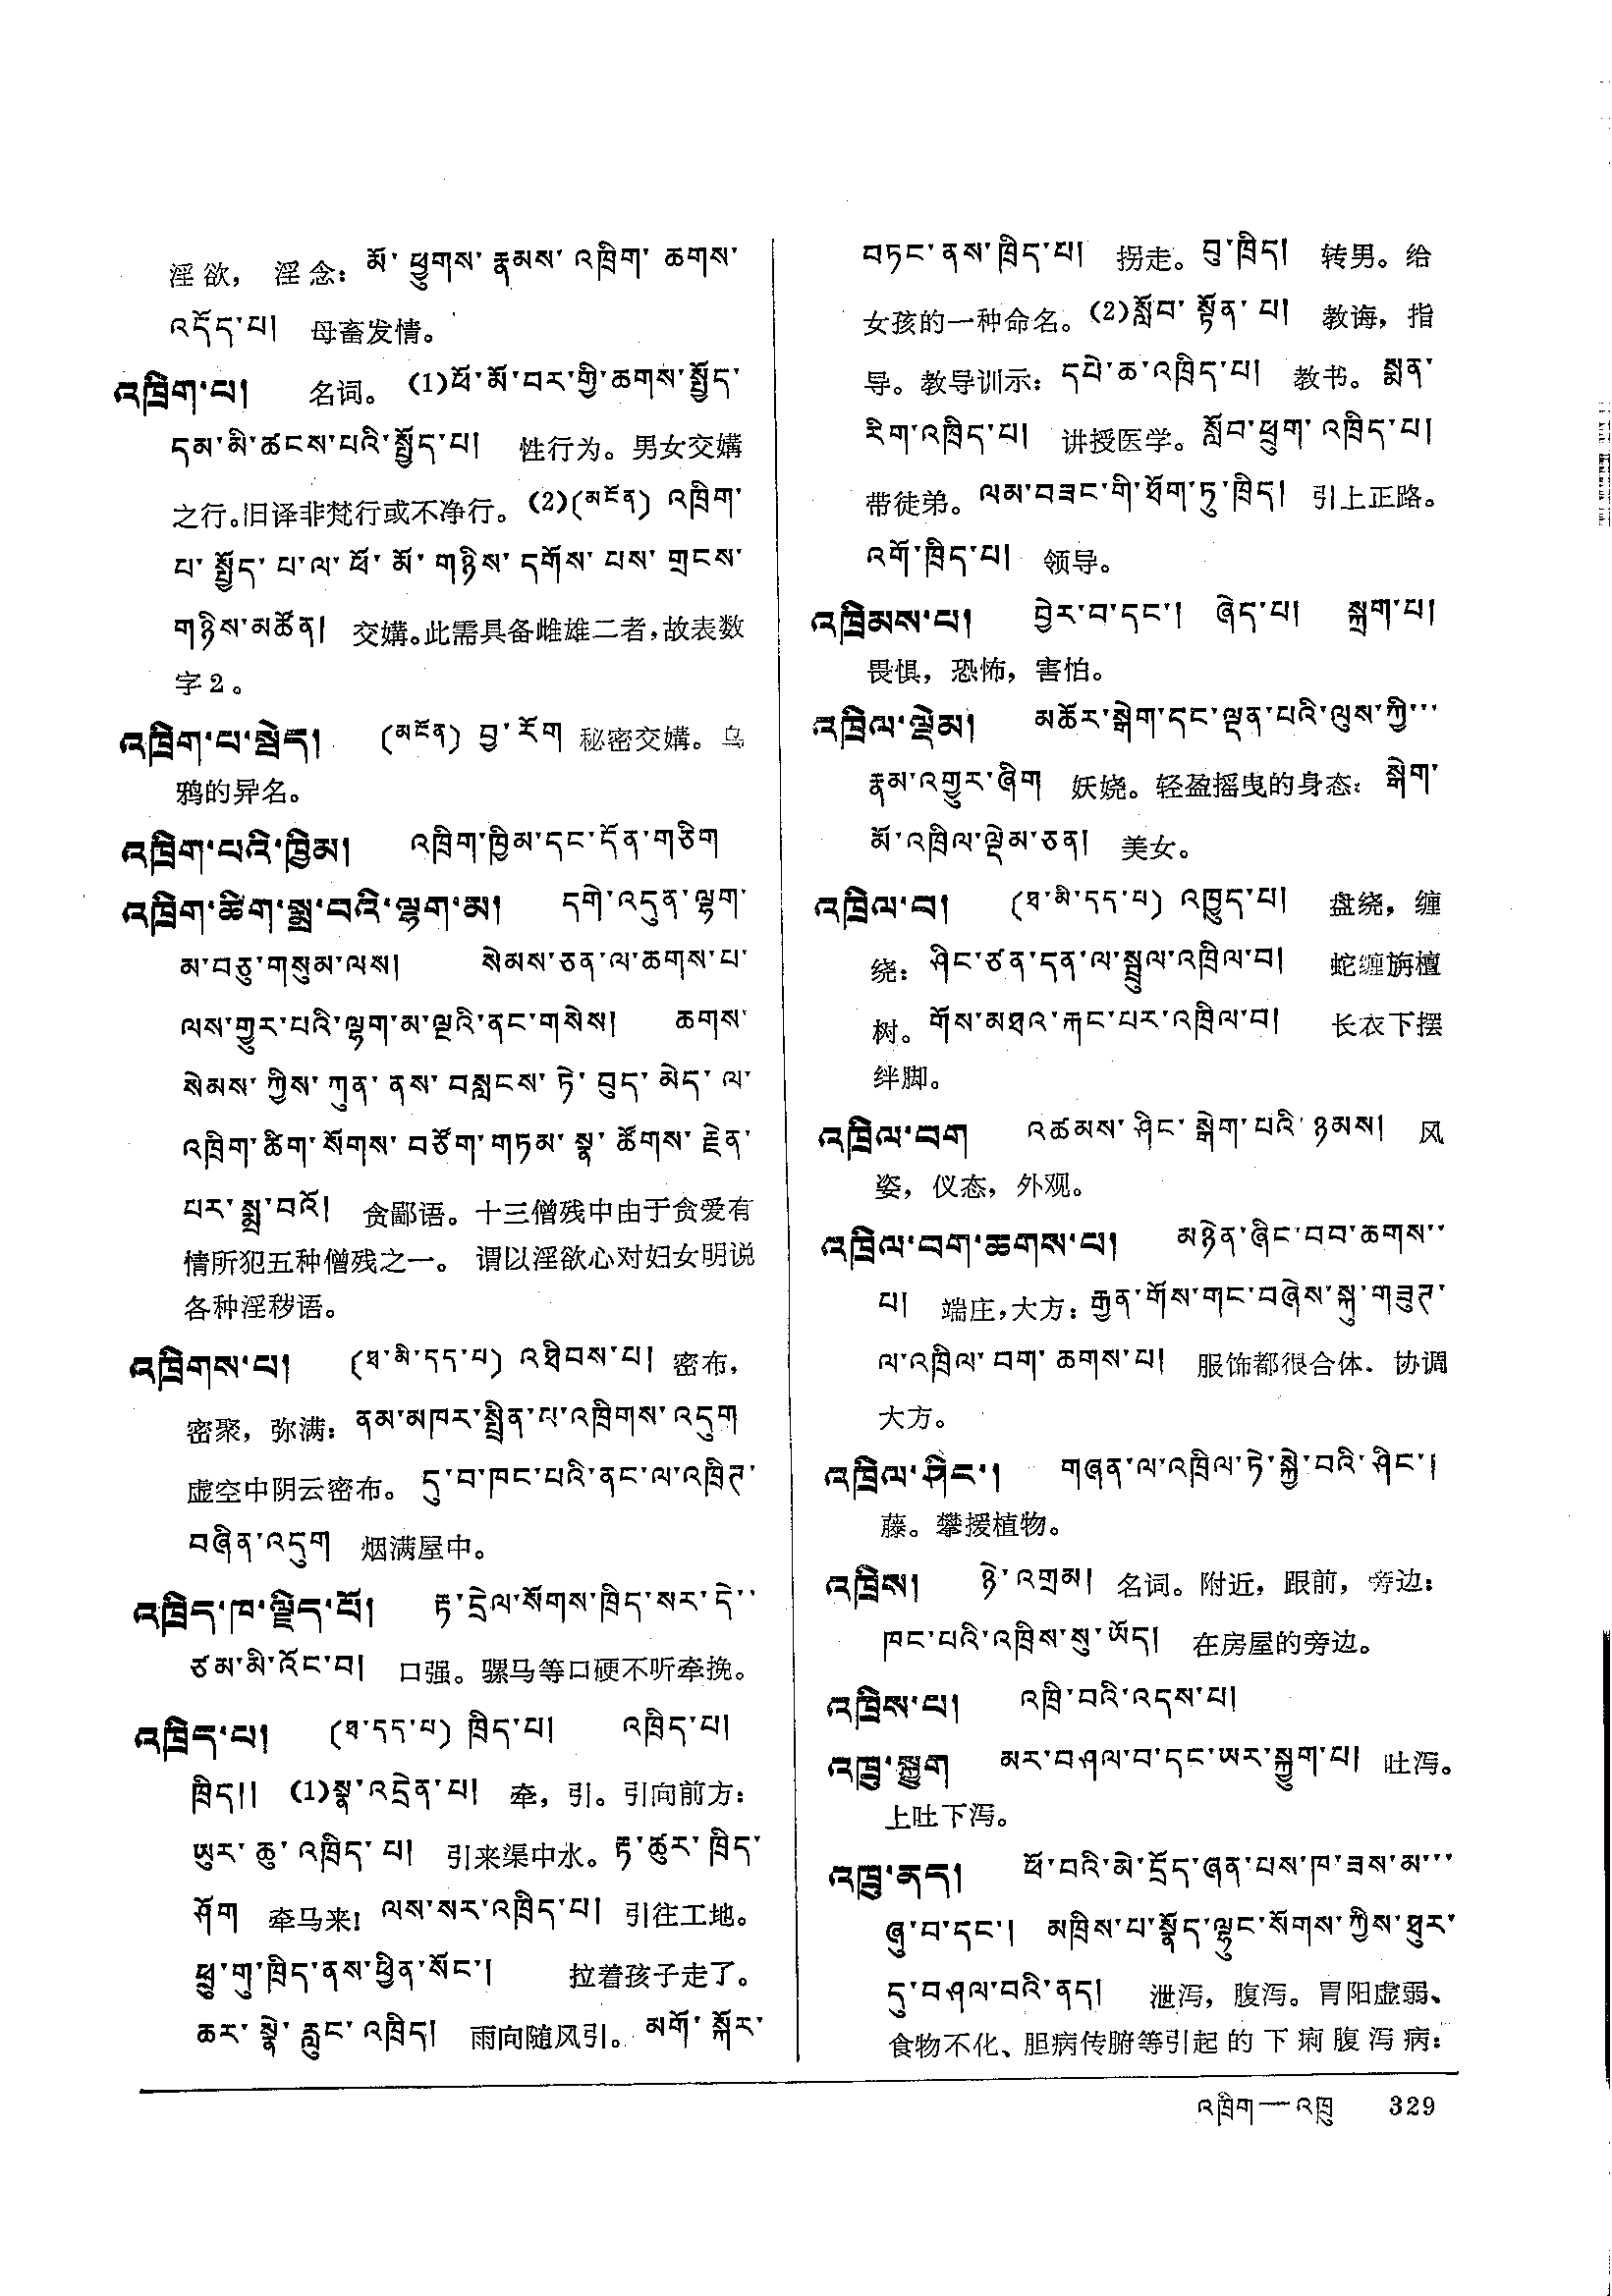 淫欲，淫念：མོ་ཕྱུགས་རྣམས་འཁྲིག་ཆགས་
འདོད་པ།　母畜发情。
འཁྲིག་པ།　名词。(1)ཕོ་མོ་བར་གྱི་ཆགས་སྤྱོད་
དམ་མི་ཚངས་པའི་སྤྱོད་པ།　性行为。男女交媾
之行。旧译非梵行或不净行。(2)(མངོན) འཁྲིག་
པ་སྤྱོད་པ་ལ་ཕོ་མོ་གཉིས་དགོས་པས་གྲངས་
གཉིས་མཚོན།　交媾。此需具备雌雄二者，故表数
字2。
འཁྲིག་པ་སྦེད།　(མངོན) བྱ་རོག　秘密交媾。乌
鸦的异名。
འཁྲིག་པའི་ཁྱིམ།　འཁྲིག་ཁྱིམ་དང་དོན་གཅིག
འཁྲིག་ཚིག་སྨྲ་བའི་ལྷག་མ།　དགེ་འདུན་ལྷག་
མ་བཅུ་གསུམ་ལས།　སེམས་ཅན་ལ་ཆགས་པ་
ལས་གྱུར་པའི་ལྷག་མ་ལྔའི་ནང་གསེས།　ཆགས་
སེམས་ཀྱིས་ཀུན་ནས་བསླངས་ཏེ་བུད་མེད་ལ་
འཁྲིག་ཚིག་སོགས་བཙོག་གཏམ་སྣ་ཚོགས་རྗེན་
པར་སྨྲ་བའོ།　贪鄙语。十三僧残中由于贪爱有
情所犯五种僧残之一。谓以淫欲心对妇女明说
各种淫秽语。
འཁྲིགས་པ།　(ཐ་མི་དད་པ) འཐིབས་པ།　密布，
密聚，弥满：ནམ་མཁར་སྤྲིན་པ་འཁྲིགས་འདུག
虚空中阴云密布。དུ་བ་ཁང་པའི་ནང་ལ་འཁྲིཊ་
བཞིན་འདུག　烟满屋中。
འཁྲིད་ཁ་ལྗིད་པོ།　རྟ་དྲེལ་སོགས་ཁྲིད་སར་དེ་་
ཙམ་མི་འོང་བ།　口强。骡马等口硬不听牵挽。
འཁྲིད་པ།　(ཐ་དད་པ) ཁྲིད་པ།　འཁྲིད་པ།
ཁྲིད།།　(1)སྣ་འདྲེན་པ།　牵，引。引向前方：
ཡུར་ཆུ་འཁྲིད་པ།　引来渠中水。རྟ་ཚུར་ཁྲིད་
ཤོག　牵马来！ལས་སར་འཁྲིད་པ།　引往工地。
ཕྲུ་གུ་ཁྲིད་ནས་ཕྱིན་སོང་།　拉着孩子走了。
ཆར་སྣེ་རླུང་འཁྲིད།　雨向随风引。མགོ་སྐོར་
བཏང་ནས་ཁྲིད་པ།　拐走。བུ་ཁྲིད།　转男。给
女孩的一种命名。(2)སློབ་སྟོན་པ།　教诲，指
导。教导训示：དཔེ་ཆ་འཁྲིད་པ།　教书。སྨན་
རིག་འཁྲིད་པ།　讲授医学。སློབ་ཕྲུག་འཁྲིད་པ།
带徒弟。ལམ་བཟང་གི་ཐོག་ཏུ་ཁྲིད།　引上正路。
འགོ་ཁྲིད་པ།　领导。
འཁྲིམས་པ།　བྱེར་བ་དང་།　ཞེད་པ།　སྐྲག་པ།
畏惧，恐怖，害怕。
འཁྲིལ་ལྡེམ།　མཚོར་སྒེག་དང་ལྡན་པའི་ལུས་ཀྱི་་་
རྣམ་འགྱུར་ཞིག　妖娆。轻盈摇曳的身态：སྒེག་
མོ་འཁྲིལ་ལྡེམ་ཅན།　美女。
འཁྲིལ་བ།　(ཐ་མི་དད་པ) འཁྱུད་པ།　盘绕，缠
绕：ཤིང་ཙན་དན་ལ་སྦྲུལ་འཁྲིལ་བ།　蛇缠旃檀
树。གོས་མཐའ་རྐང་པར་འཁྲིལ་བ།　长衣下摆
绊脚。
འཁྲིལ་བག　འཚམས་ཤིང་སྒེག་པའི་ཉམས།　风
姿，仪态，外观。
འཁྲིལ་བག་ཆགས་པ།　མཉེན་ཞིང་བབ་ཆགས་་
པ།　端庄，大方：རྒྱན་གོས་གང་བཞེས་སྐུ་གཟུཊ་
ལ་འཁྲིལ་བག་ཆགས་པ།　服饰都很合体．协调
大方。
འཁྲིལ་ཤིང་།　གཞན་ལ་འཁྲིལ་ཏེ་སྐྱེ་བའི་ཤིང་།
藤。攀援植物。
འཁྲིས།　ཉེ་འགྲམ།　名词。附近，跟前，旁边：
ཁང་པའི་འཁྲིས་སུ་ཡོད།　在房屋的旁边。
འཁྲིས་པ།　འཁྲི་བའི་འདས་པ།
འཁྲུ་སྐྱུག　མར་བཤལ་བ་དང་ཡར་སྐྱུག་པ།　吐泻。
上吐下泻。
འཁྲུ་ནད།　ཕོ་བའི་མེ་དྲོད་ཞན་པས་ཁ་ཟས་མ་་་
ཞུ་བ་དང་།　མཁྲིས་པ་སྣོད་ལྷུང་སོགས་ཀྱིས་ཐུར་
དུ་བཤལ་བའི་ནད།　泄泻，腹泻。胃阳虚弱、
食物不化、胆病传腑等引起的下痢腹泻病：
འཁྲིག—འཁྲུ　329